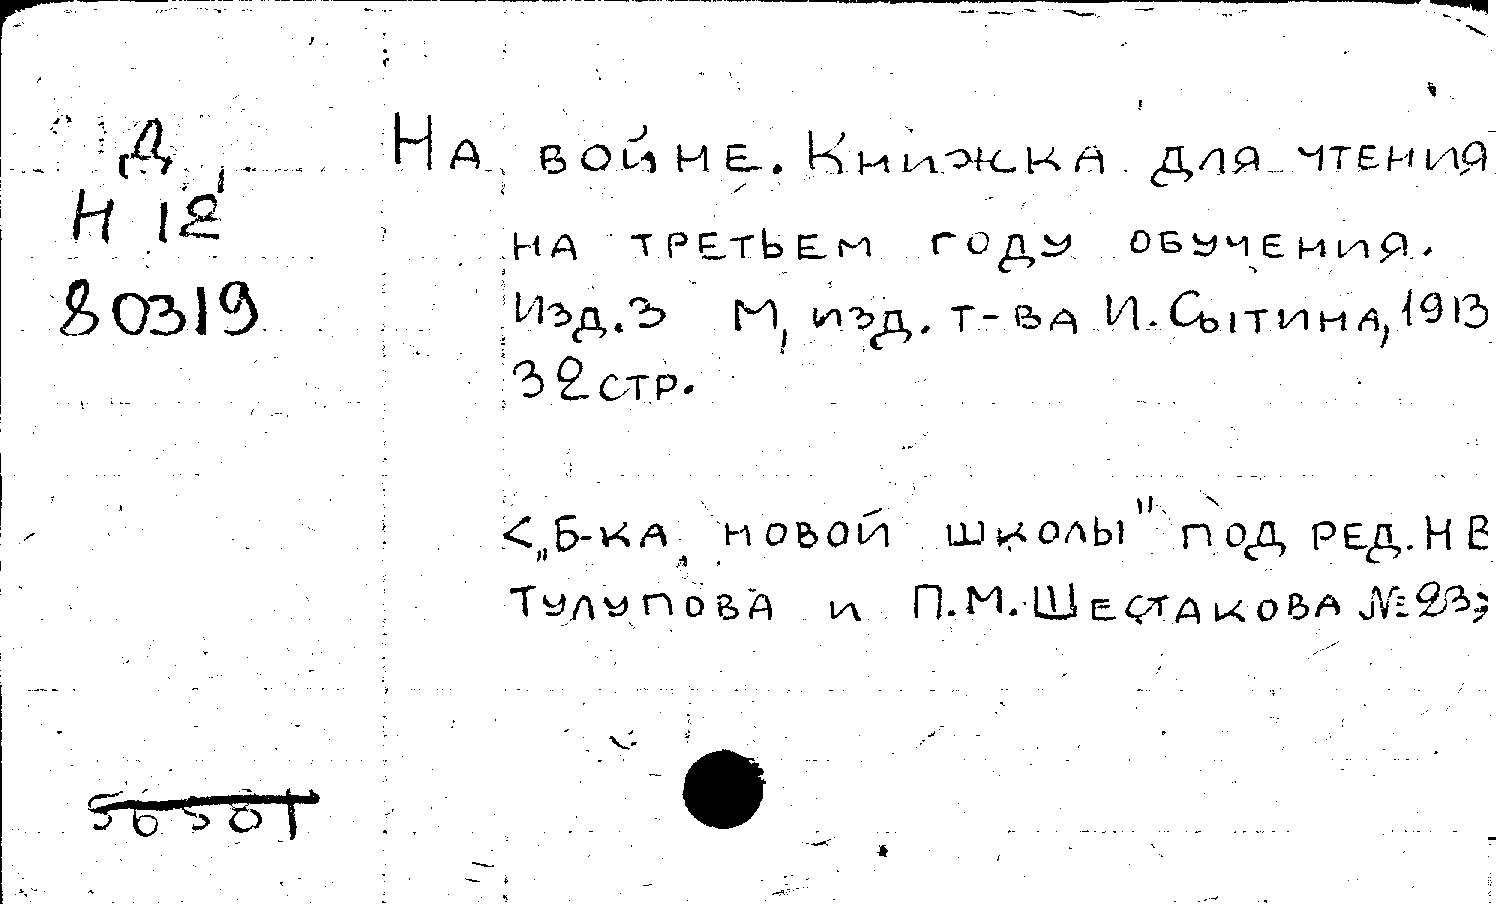 Д
Н 12
80319
На войне. Книжка для чтения
на третьем году обучения.
Изд. 3 М, изд. т-ва И. Сытина, 1913
32 стр.
<„Б-ка новой школы" под ред. Н В
Тулупова и П.М. Шестакова № 23;
56501